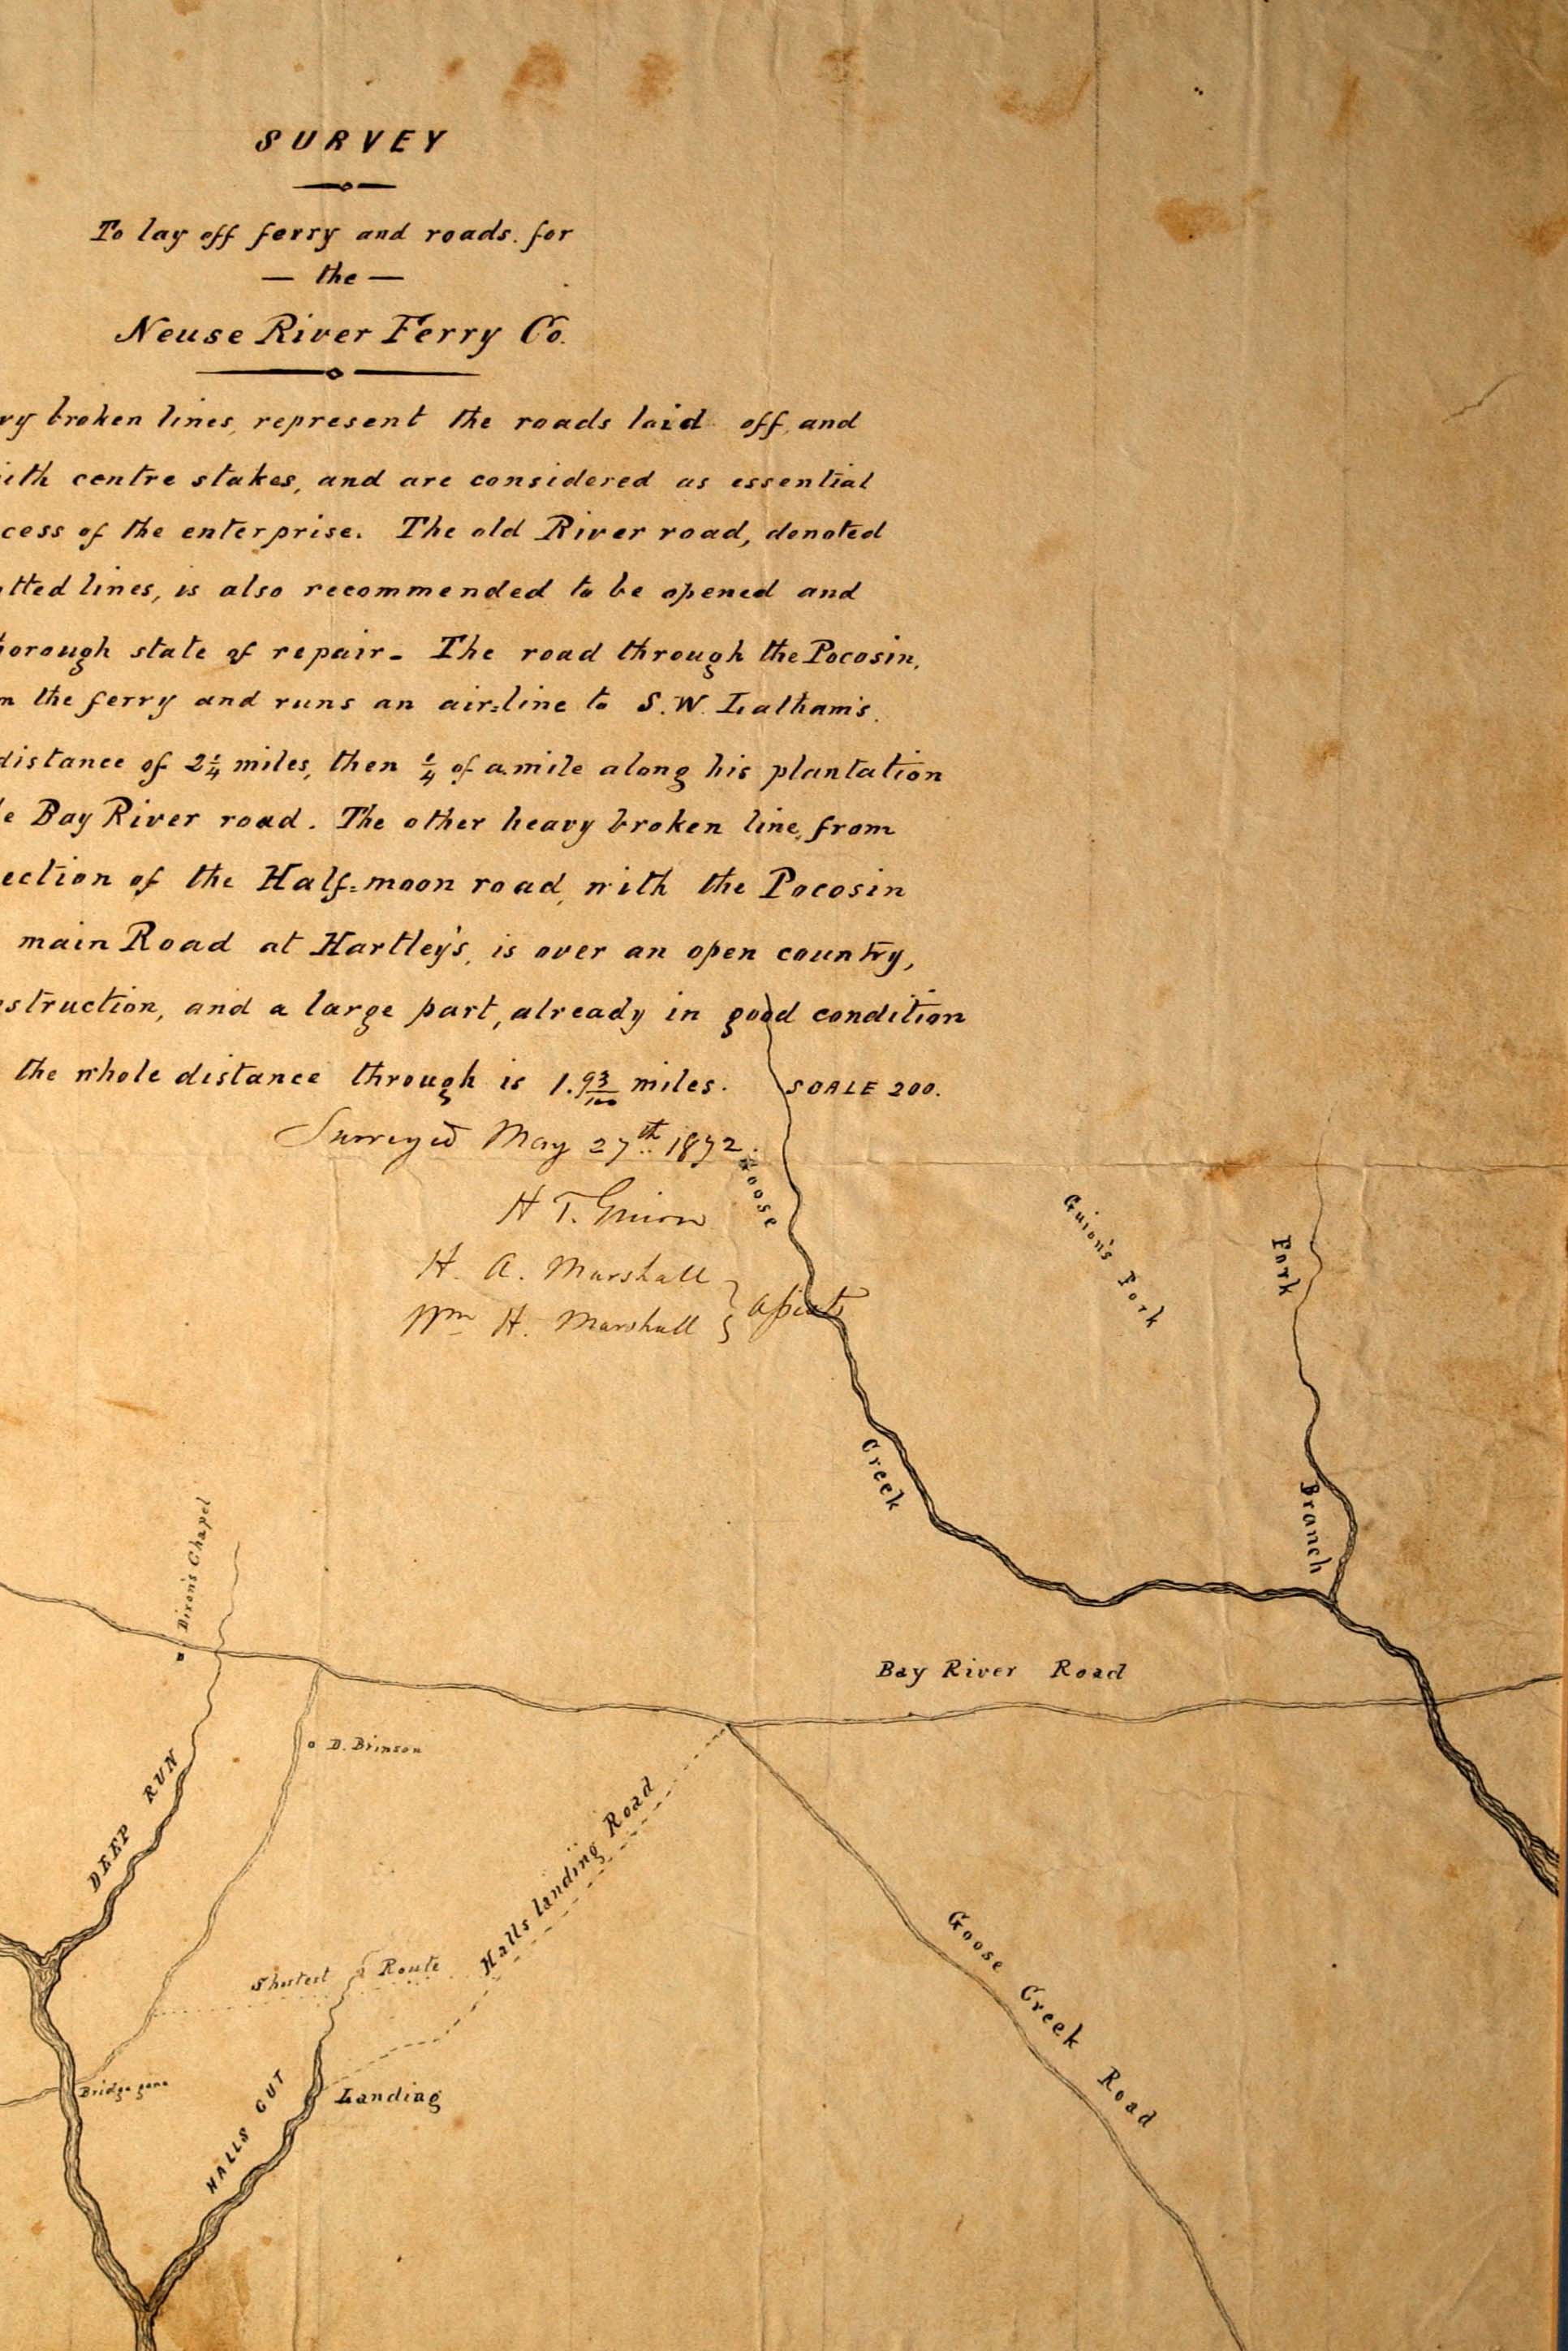 SURVEY
To lay off ferry and roads for
— the —
Neuse River Ferry Co.
vy broken lines, represent the roads laid off, and
ith centre stakes, and are considered as essential
cess of the enterprise. The old River road, denoted
tted lines, is also recommended to be opened and
horough state of repair- The road through the Pocosin,
m the ferry and runs an air=line to S. W. Latham's.
distance of 2¼ miles, then ¼ of a mile along his plantation
e Bay River road. The other heavy broken line, from
ection of the Half=moon road, with the Pocosin
main Road at Hartley's, is over an open country,
struction, and a large part, already in good condition
the whole distance through is 1.93/100 miles. SCALE 200.
Surveyed May 27th 1872.
H T. Guion
H. A. Marshall
Wm H. Marshall
Goose
Creek
Guion's Fork
Fork
Branch
Dixon's Chapel
Bay River Road
D. Brinson
DEEP RUN
Halls landing Road
Shortest Route
Goose Creek Road
Bridge gone
HALLS GUT
Landing